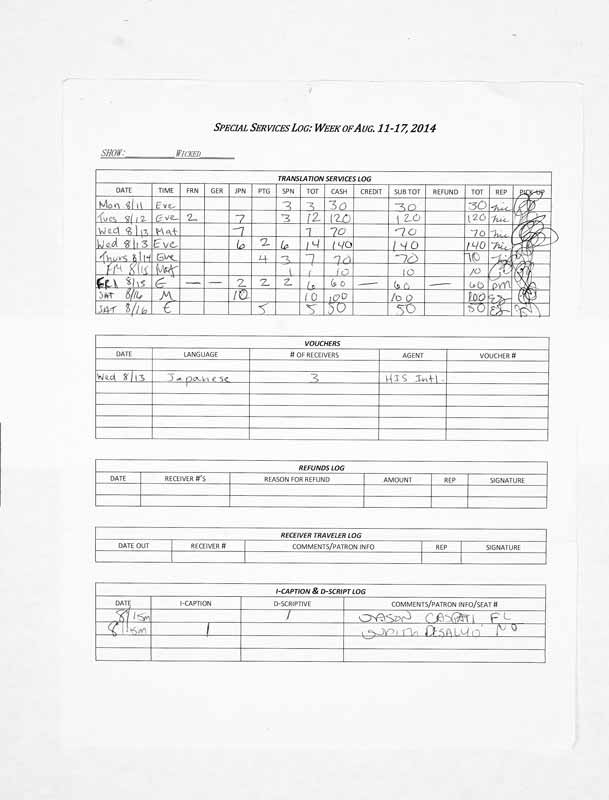 SPECIAL SERVICES LOG: WEEK OF AUG. 11-17, 2014
SHOW: WICKED
TRANSLATION SERVICES LOG
DATE TIME FRN GER JPN PTG SPN TOT CASH CREDIT SUB TOT REFUND TOT REP PICK-UP
Mon 8/11 Eve 3 3 30 30 30
Tues 8/12 Eve 2 7 3 12 120 120 120
Wed 8/13 Mat 7 7 70 70 70
Wed 8/13 Eve 6 2 6 14 140 140 140
Thurs 8/14 Eve 4 3 7 70 70 70
Fri 8/15 Mat 1 1 10 10 10
FRI 8/15 E — — 2 2 2 6 60 — 60 — 60 pm
SAT 8/16 M 10 10 100 100 100
SAT 8/16 E 5 5 50 50 50
VOUCHERS
DATE LANGUAGE # OF RECEIVERS AGENT VOUCHER #
Wed 8/13 Japanese 3 HIS Intl.
REFUNDS LOG
DATE RECEIVER #'S REASON FOR REFUND AMOUNT REP SIGNATURE
RECEIVER TRAVELER LOG
DATE OUT RECEIVER # COMMENTS/PATRON INFO REP SIGNATURE
I-CAPTION & D-SCRIPT LOG
DATE I-CAPTION D-SCRIPTIVE COMMENTS/PATRON INFO/SEAT #
8/15m 1 JASON FL
8/15m 1 JUDITH